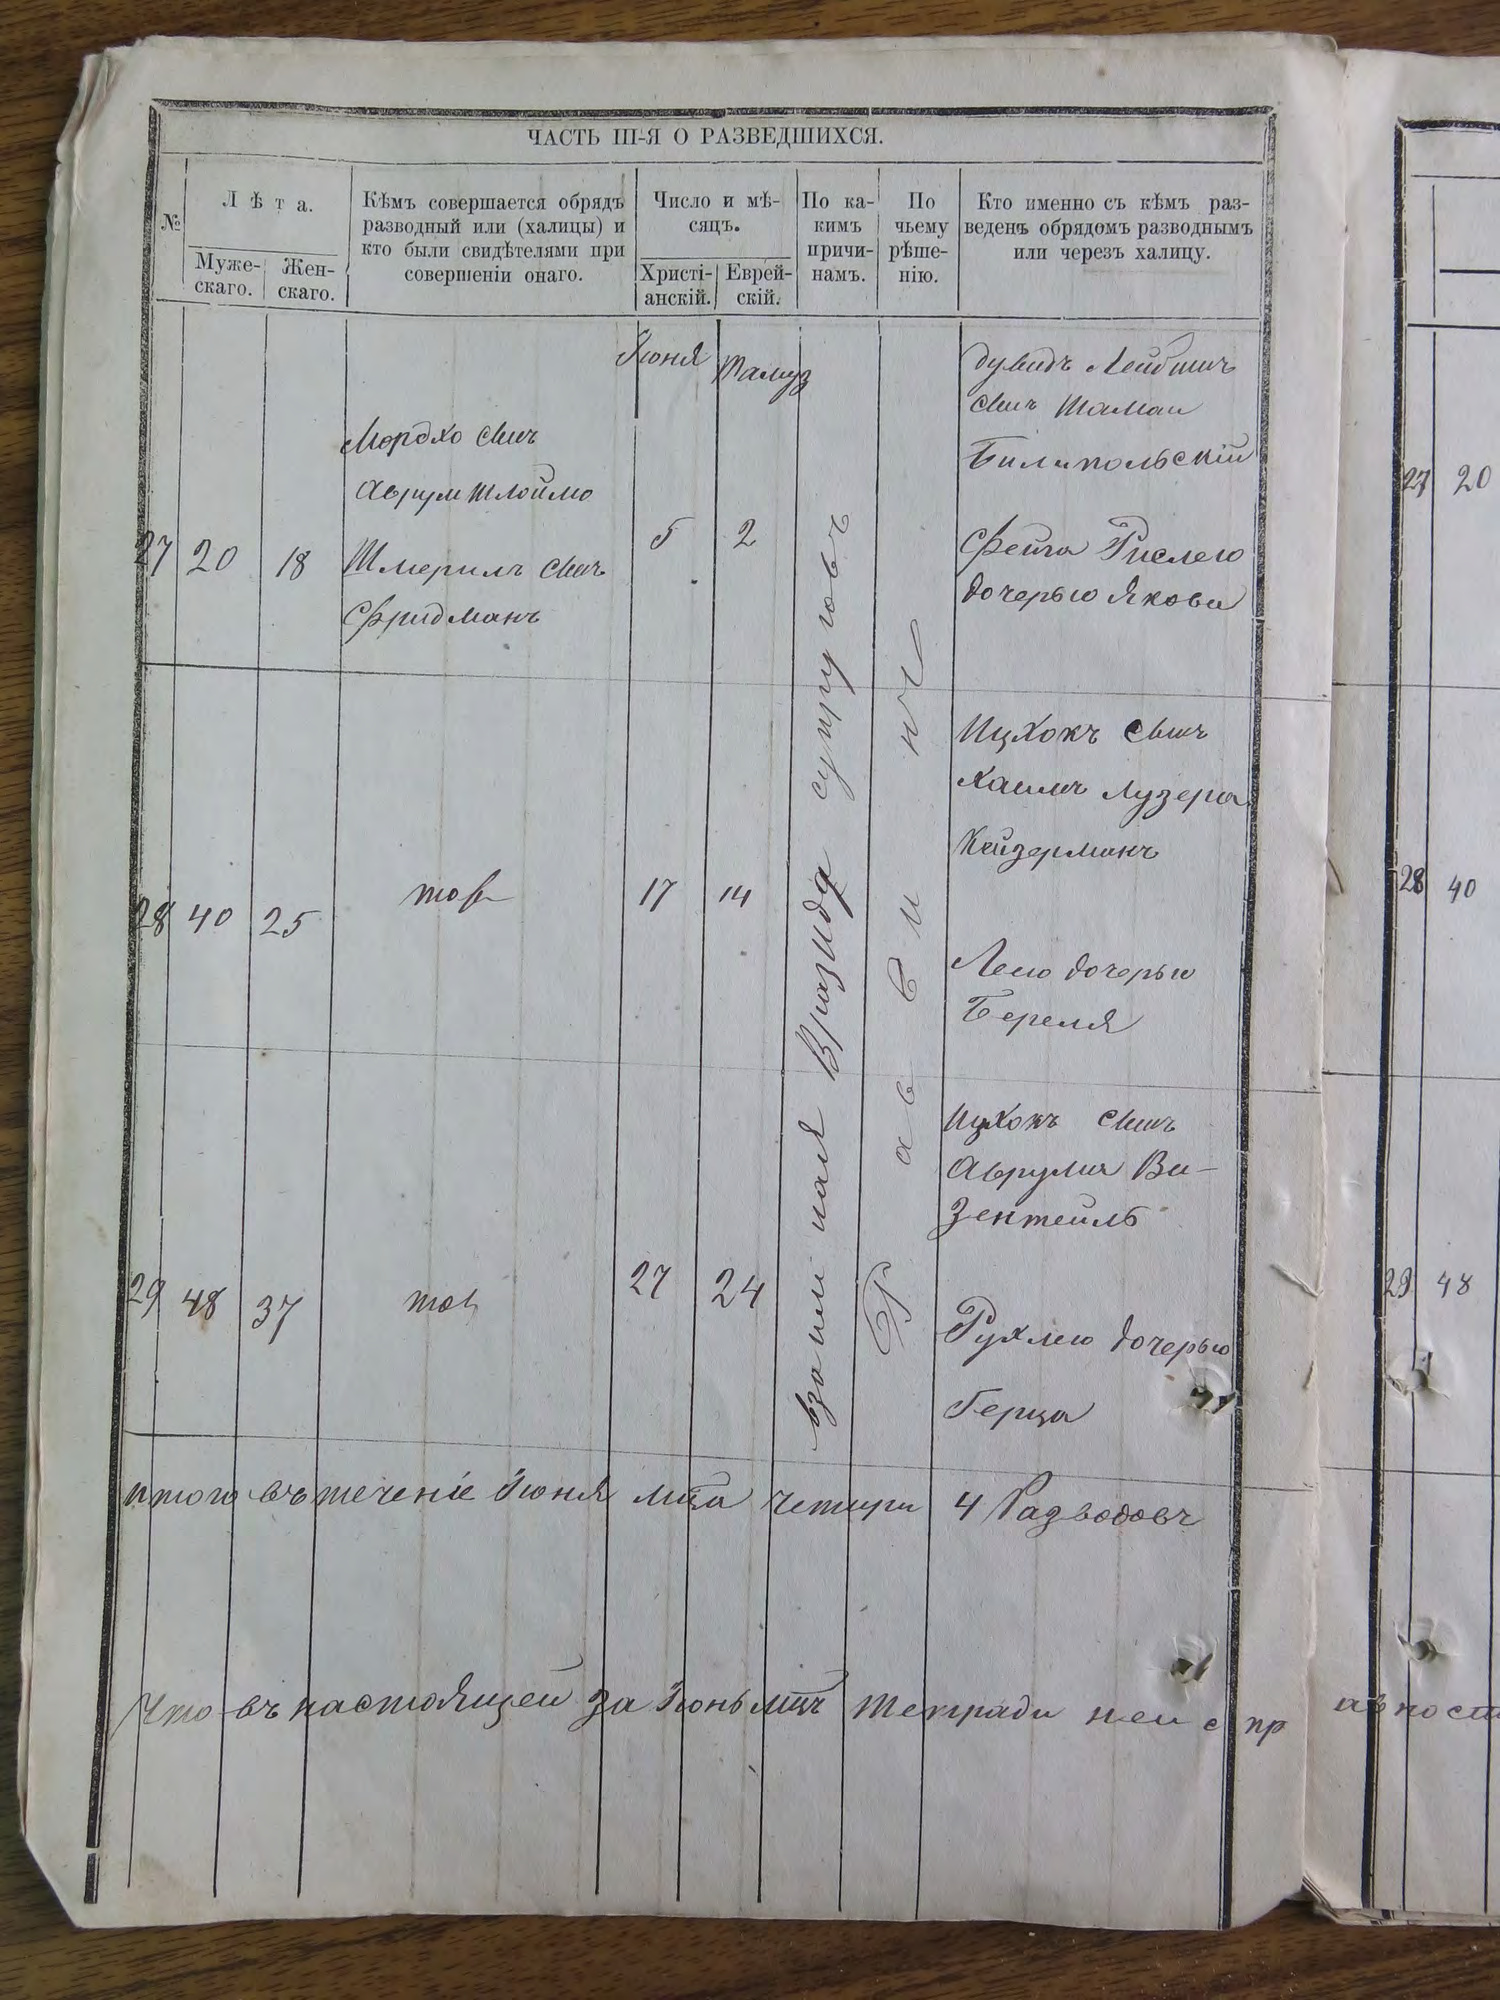 ЧАСТЬ III-Я О РАЗВЕДШИХСЯ.
№
Лѣта.
Муже-
скаго.
Жен-
скаго.
Кѣмъ совершается обрядъ
разводный или (халицы) и
кто были свидѣтелями при
совершеніи онаго.
Число и мѣ-
сяцъ.
Христі-
анскій.
Еврей-
скій.
По ка-
кимъ
причи-
намъ.
По
чьему
рѣше-
нію.
Кто именно съ кѣмъ раз-
веденъ обрядомъ разводнымъ
или черезъ халицу.
Іюня
Тамуз
27
20
18
Мордхо
Аврум Шлоймо
Шмерилъ
Фридманъ
5
2
взаимная вражда супруговъ
Раввинъ
Дувидъ
Шамаи
Билипольскій
Фейга Рислею
дочерью Якова
28
40
25
тов
17
14
Ицхокъ
Хаимъ Лузера
Кейзерманъ
Леею дочерью
Береля
29
48
37
тов
27
24
Ицхокъ
Аврума Ви-
зентейль
Рухлею дочерью
Герца
итого въ теченіе Іюня мца четири 4 Разводовъ
Что въ настоящей за Іюнь мцъ тетради неи с пр
27 20
28 40
29 48